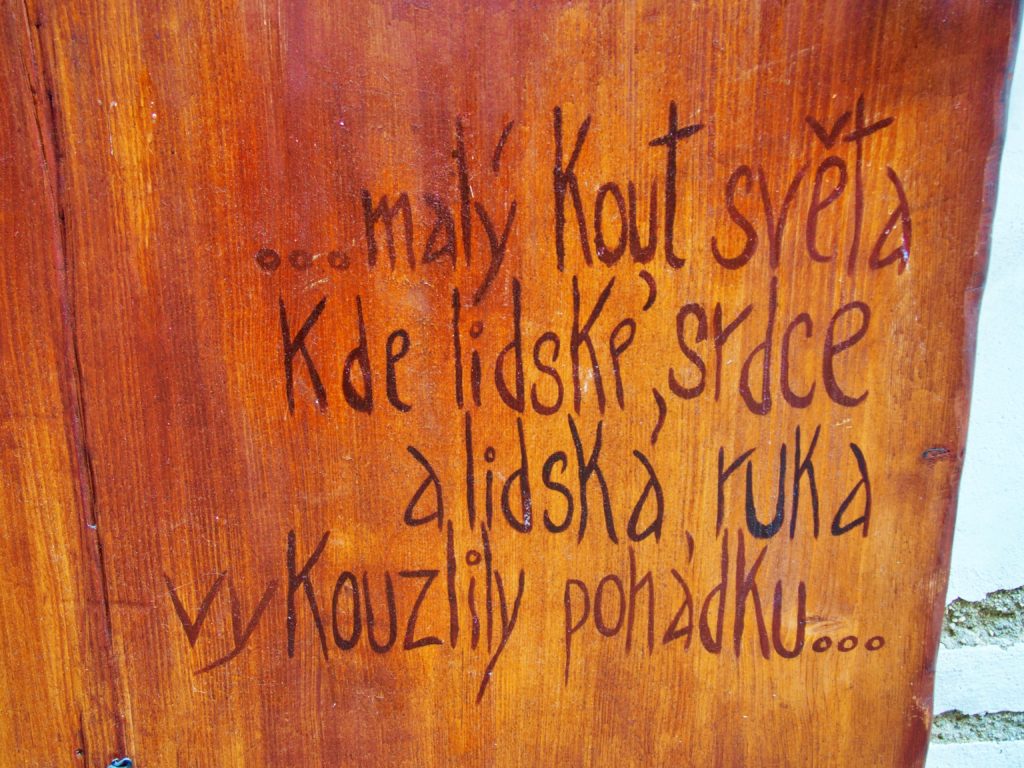 ...malý kout světa
kde lidské srdce
a lidská ruka
vykouzlily pohádku...